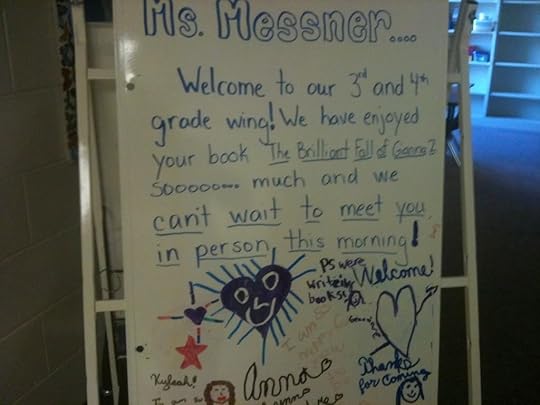 Ms. Messner....
Welcome to our 3rd and 4th
grade wing! We have enjoyed
your book The Brilliant Fall of Gianna Z
Soooooo... much and we
can't wait to meet you
in person this morning!
PS were
writeing
books!
Welcome!
I am S
Thanks
for Coming
Kyleah!
I am a
Anna